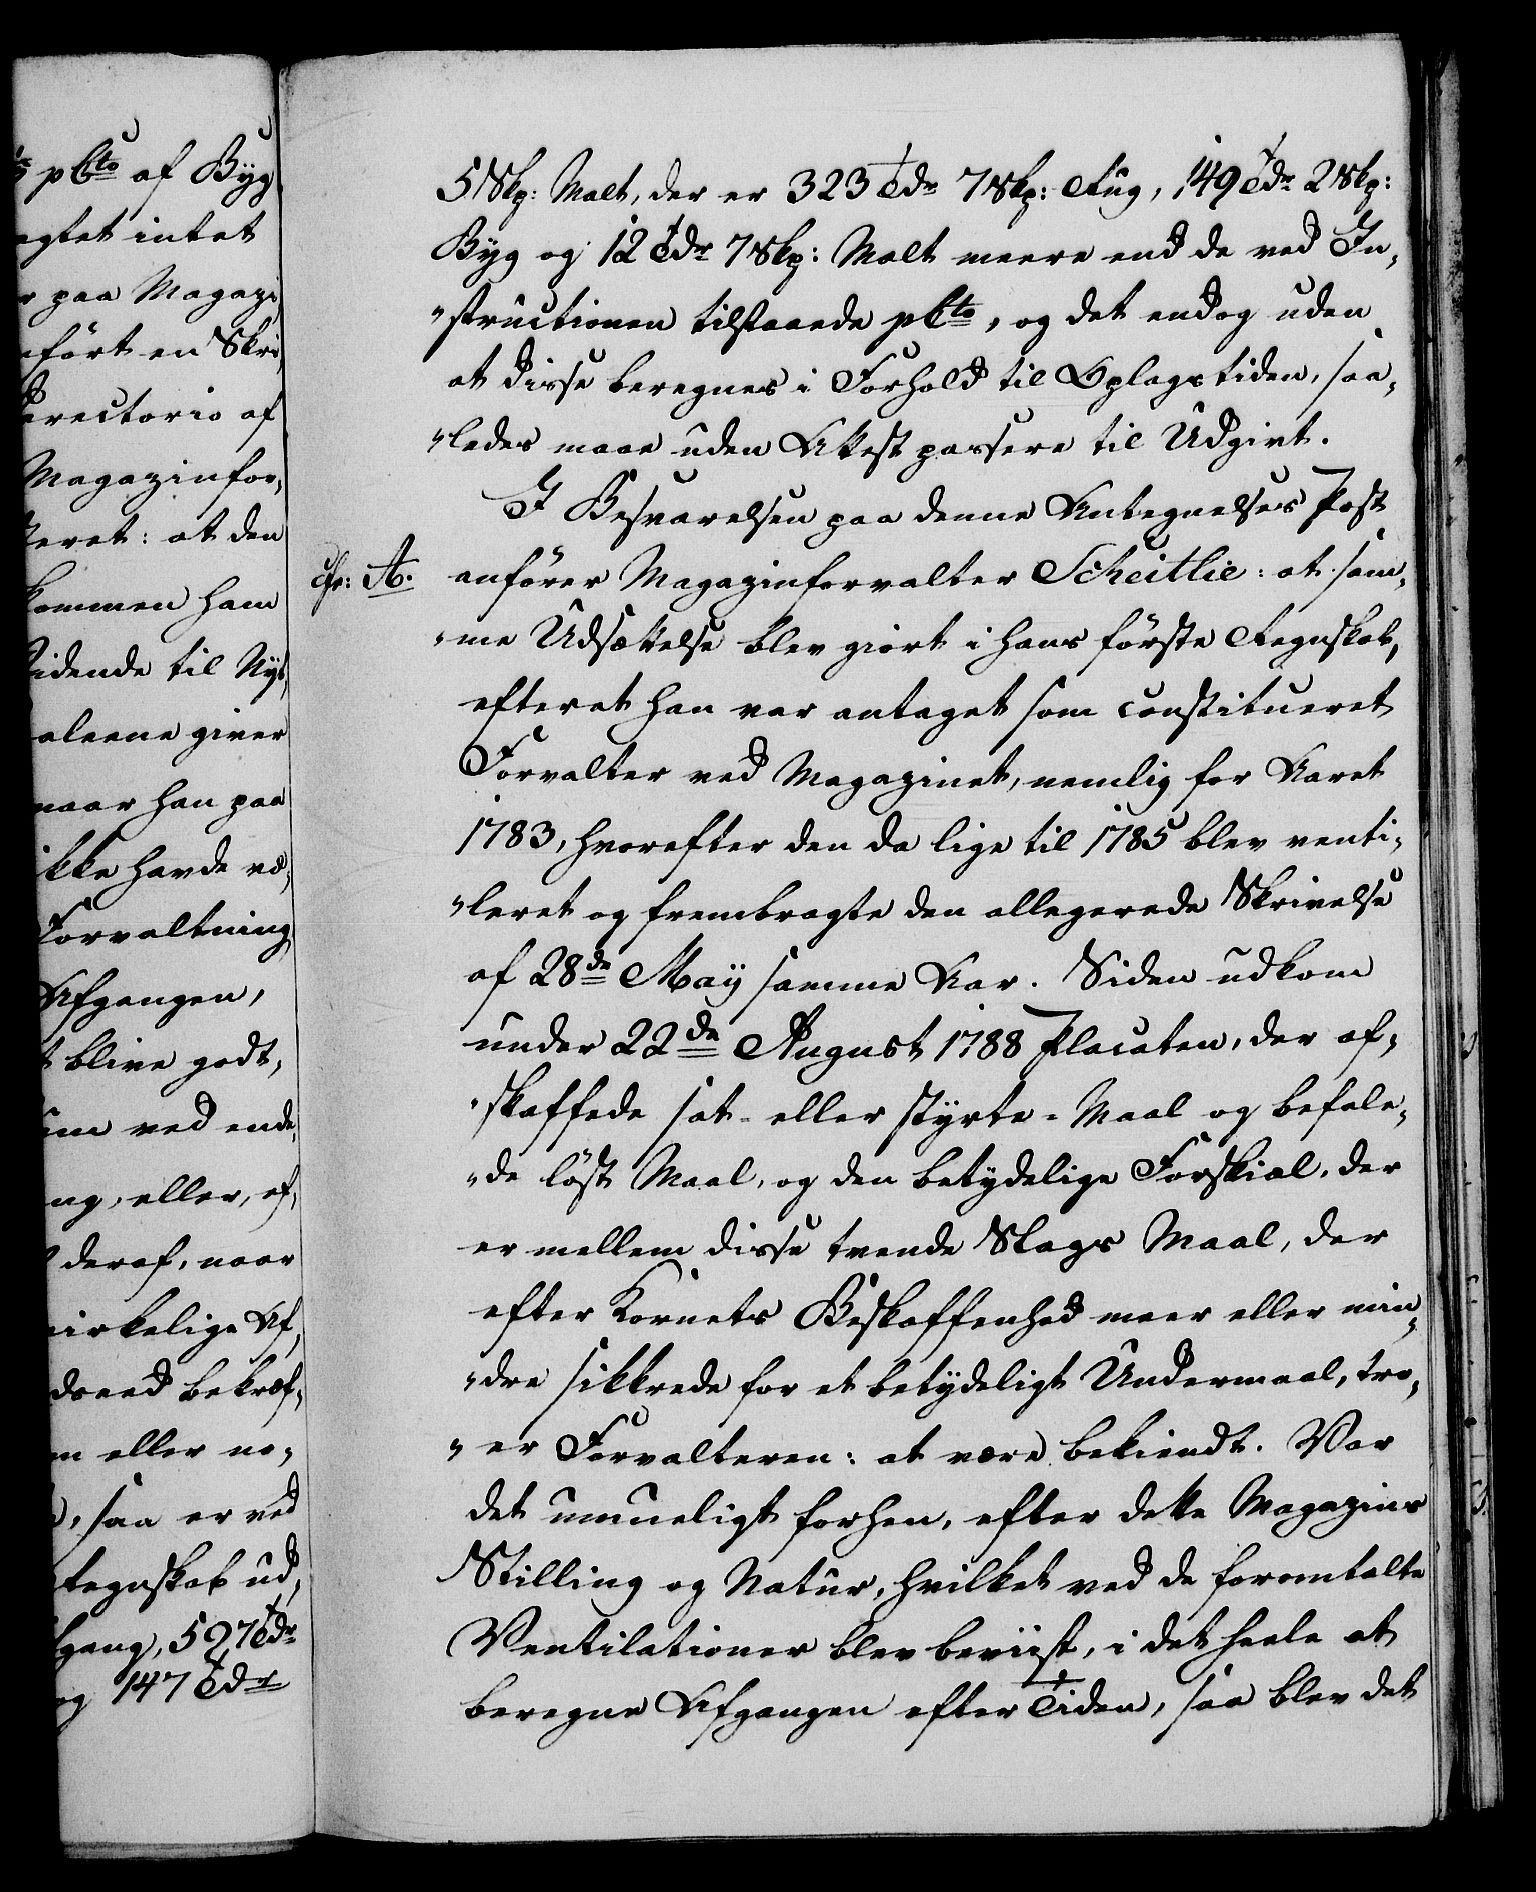 pCto af Byg
egtet intet
r paa Magazi
ført en Skri
irectorio af
Magazinfor,
teret: at den
kommen ham
tidende til Nyt,
aleene giver
naar han paa
ikke havde væ,
Forvaltning
Afgangen,
t blive godt,
um ved ende,
ng, eller, ef,
deraf, naar
virkelige Af,
dseed bekræf,
m eller no,
, saa er ved
Regnskab ud,
fgang, 527 Tdr
og 147 Tdr
5 Skp: Malt, der er 323 Tdr 7 Skp: Rug, 149 Tdr 2 Skp:
Byg og 12 Tdr 7 Skp: Malt meere end de ved In,
"structionen tilstaaede pCto, og det endog uden
at disse beregnes i Forhold til Oplagstiden, saa,
"ledes maae uden Attest passere til Udgivt.
I Besvarelsen paa denne Antegnelses Post
cfr: A. anfører Magazinforvalter Scheitlie: at sam,
"me Udsættelse blev giort i hans første Regnskab,
efterat han var antaget som constitueret
Forvalter ved Magazinet, nemlig for Aaret
1783, hvorefter den da lige til 1785 blev venti,
"leret og frembragte den allegerede Skrivelse
af 28de May samme Aar. Siden udkom
under 22de August 1788 Placaten, der af,
"skaffede sat- eller styrte-Maal og befale,
"de løst Maal, og den betydelige Forskiel, der
er mellem disse tvende Slags Maal, der
efter Kornets Beskaffenhed meer eller min,
"dre sikkrede for et betydeligt Undermaal, tro,
"er Forvalteren: at være bekiendt. Var
det umueligt forhen, efter dette Magazins
Stilling og Natur, hvilket ved de foromtalte
Ventilationer blev beviist, i det heele at
beregne Afgangen efter Tiden, saa blev det